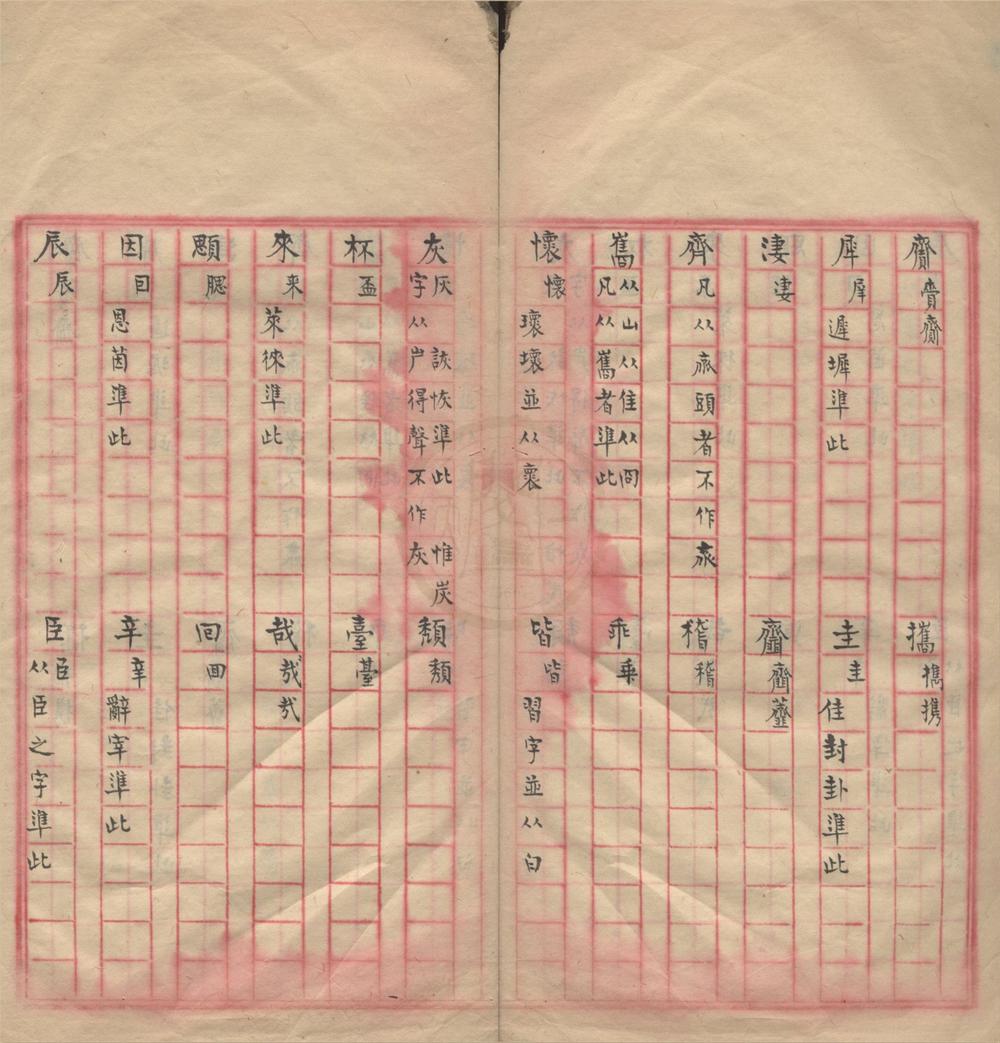 齎 賷齎 攜 㩦携
犀 犀 遲墀準此 圭 圭 佳封卦準此
淒 凄 齏
齊 凡从齊頭者不作 稽 稽
巂 从山从隹从冏 凡从巂者準此 乖 乗
懷 懷 瓌壞並从褱 皆 皆 習字並从白
灰 灰 詼恢準此 惟炭字从屵得聲不作灰 頽 頽
杯 盃 臺 臺
來 来 萊徠準此 哉 㢤
顋 腮 回 囬
因 囙 恩茵準此 辛 辛 辭宰準此
辰 辰 臣 臣 从臣之字準此